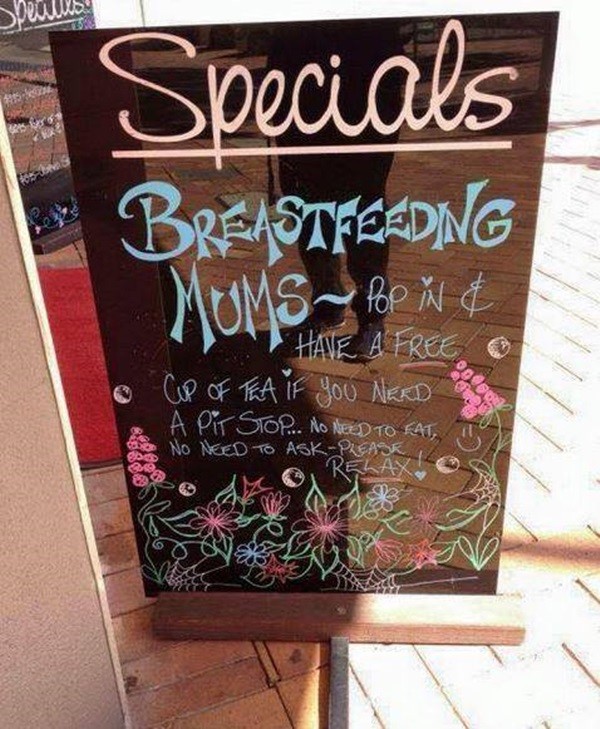 Specials
Specials
BREASTFEEDING
MUMS~ POP IN &
HAVE A FREE
CUP OF TEA IF YOU NEED
A PIT STOP... NO NEED TO EAT,
NO NEED TO ASK-PLEASE
RELAX!